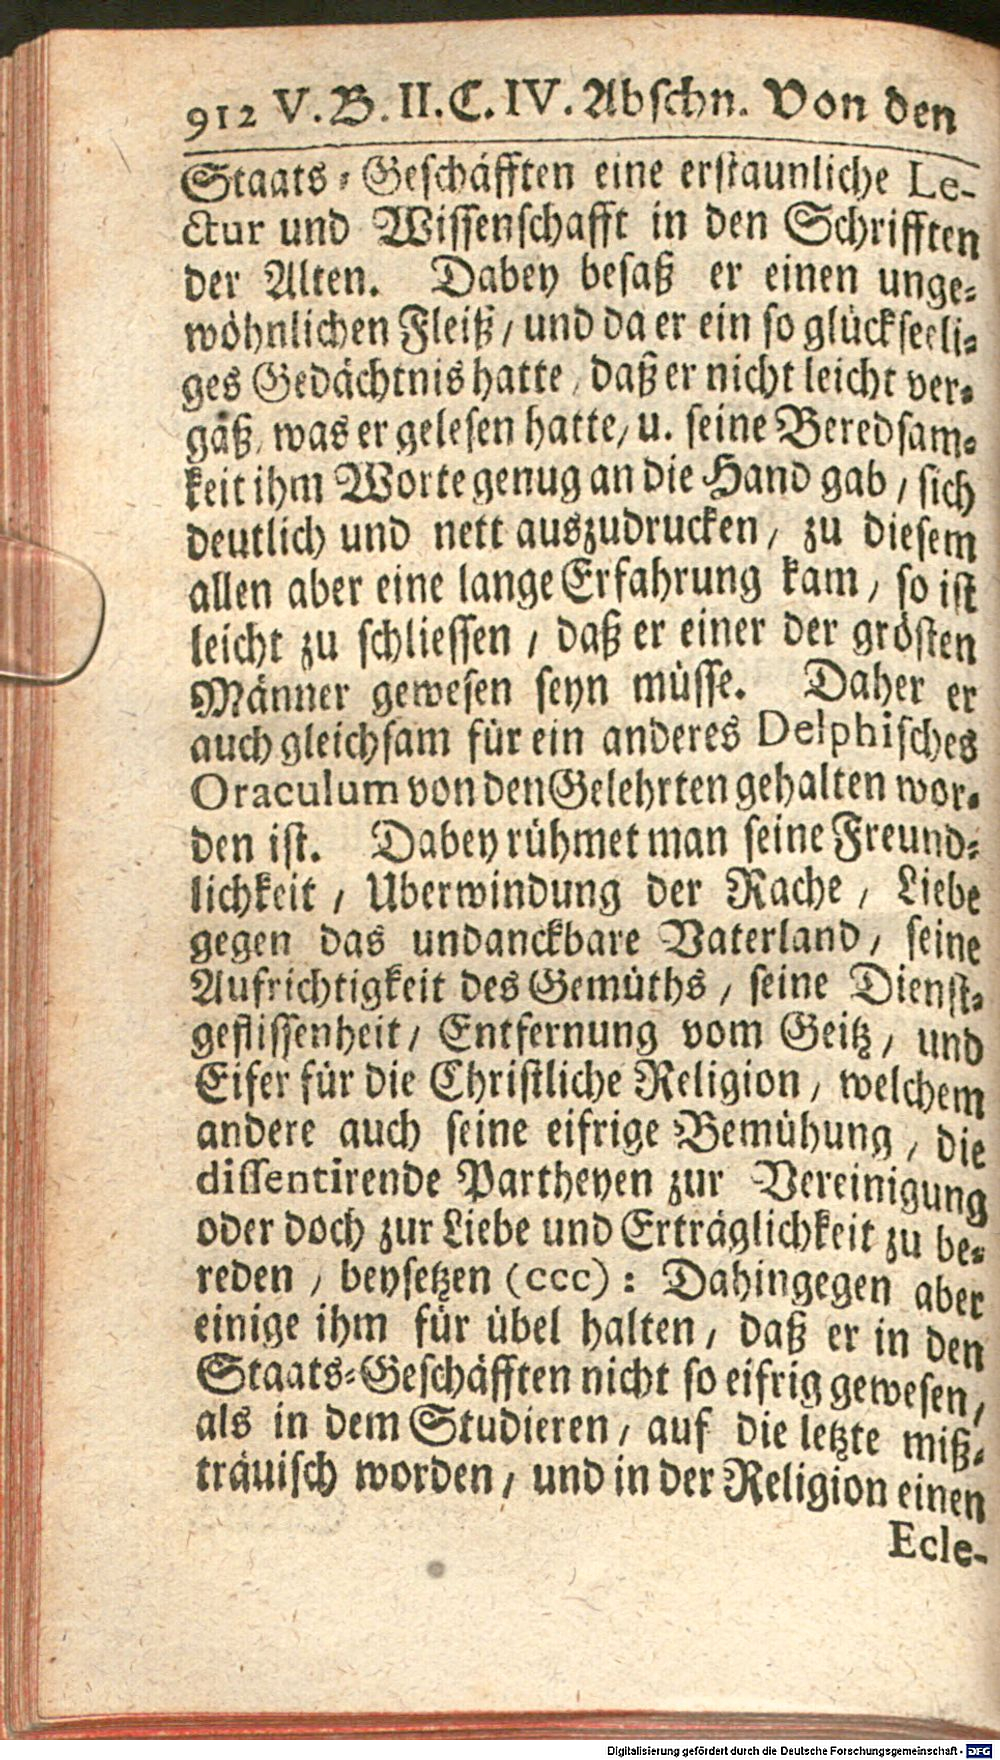 912 V. B. II. C. IV. Abschn. Von den
Staats-Geschäfften eine erstaunliche Le-
ctur und Wissenschafft in den Schrifften
der Alten. Dabey besaß er einen unge-
wöhnlichen Fleiß / und da er ein so glückseeli-
ges Gedächtnis hatte / daß er nicht leicht ver-
gäß / was er gelesen hatte / u. seine Beredsam-
keit ihm Worte genug an die Hand gab / sich
deutlich und nett auszudrucken / zu diesem
allen aber eine lange Erfahrung kam / so ist
leicht zu schliessen / daß er einer der grösten
Männer gewesen seyn müsse. Daher er
auch gleichsam für ein anderes Delphisches
Oraculum von den Gelehrten gehalten wor-
den ist. Dabey rühmet man seine Freund-
lichkeit / Uberwindung der Rache / Liebe
gegen das undanckbare Vaterland / seine
Aufrichtigkeit des Gemüths / seine Dienst-
geflissenheit / Entfernung vom Geitz / und
Eifer für die Christliche Religion / welchem
andere auch seine eifrige Bemühung / die
dissentirende Partheyen zur Vereinigung
oder doch zur Liebe und Erträglichkeit zu be-
reden / beysetzen (ccc) : Dahingegen aber
einige ihm für übel halten / daß er in den
Staats-Geschäfften nicht so eifrig gewesen /
als in dem Studieren / auf die letzte miß-
träuisch worden / und in der Religion einen
Ecle-
Digitalisierung gefördert durch die Deutsche Forschungsgemeinschaft - DFG